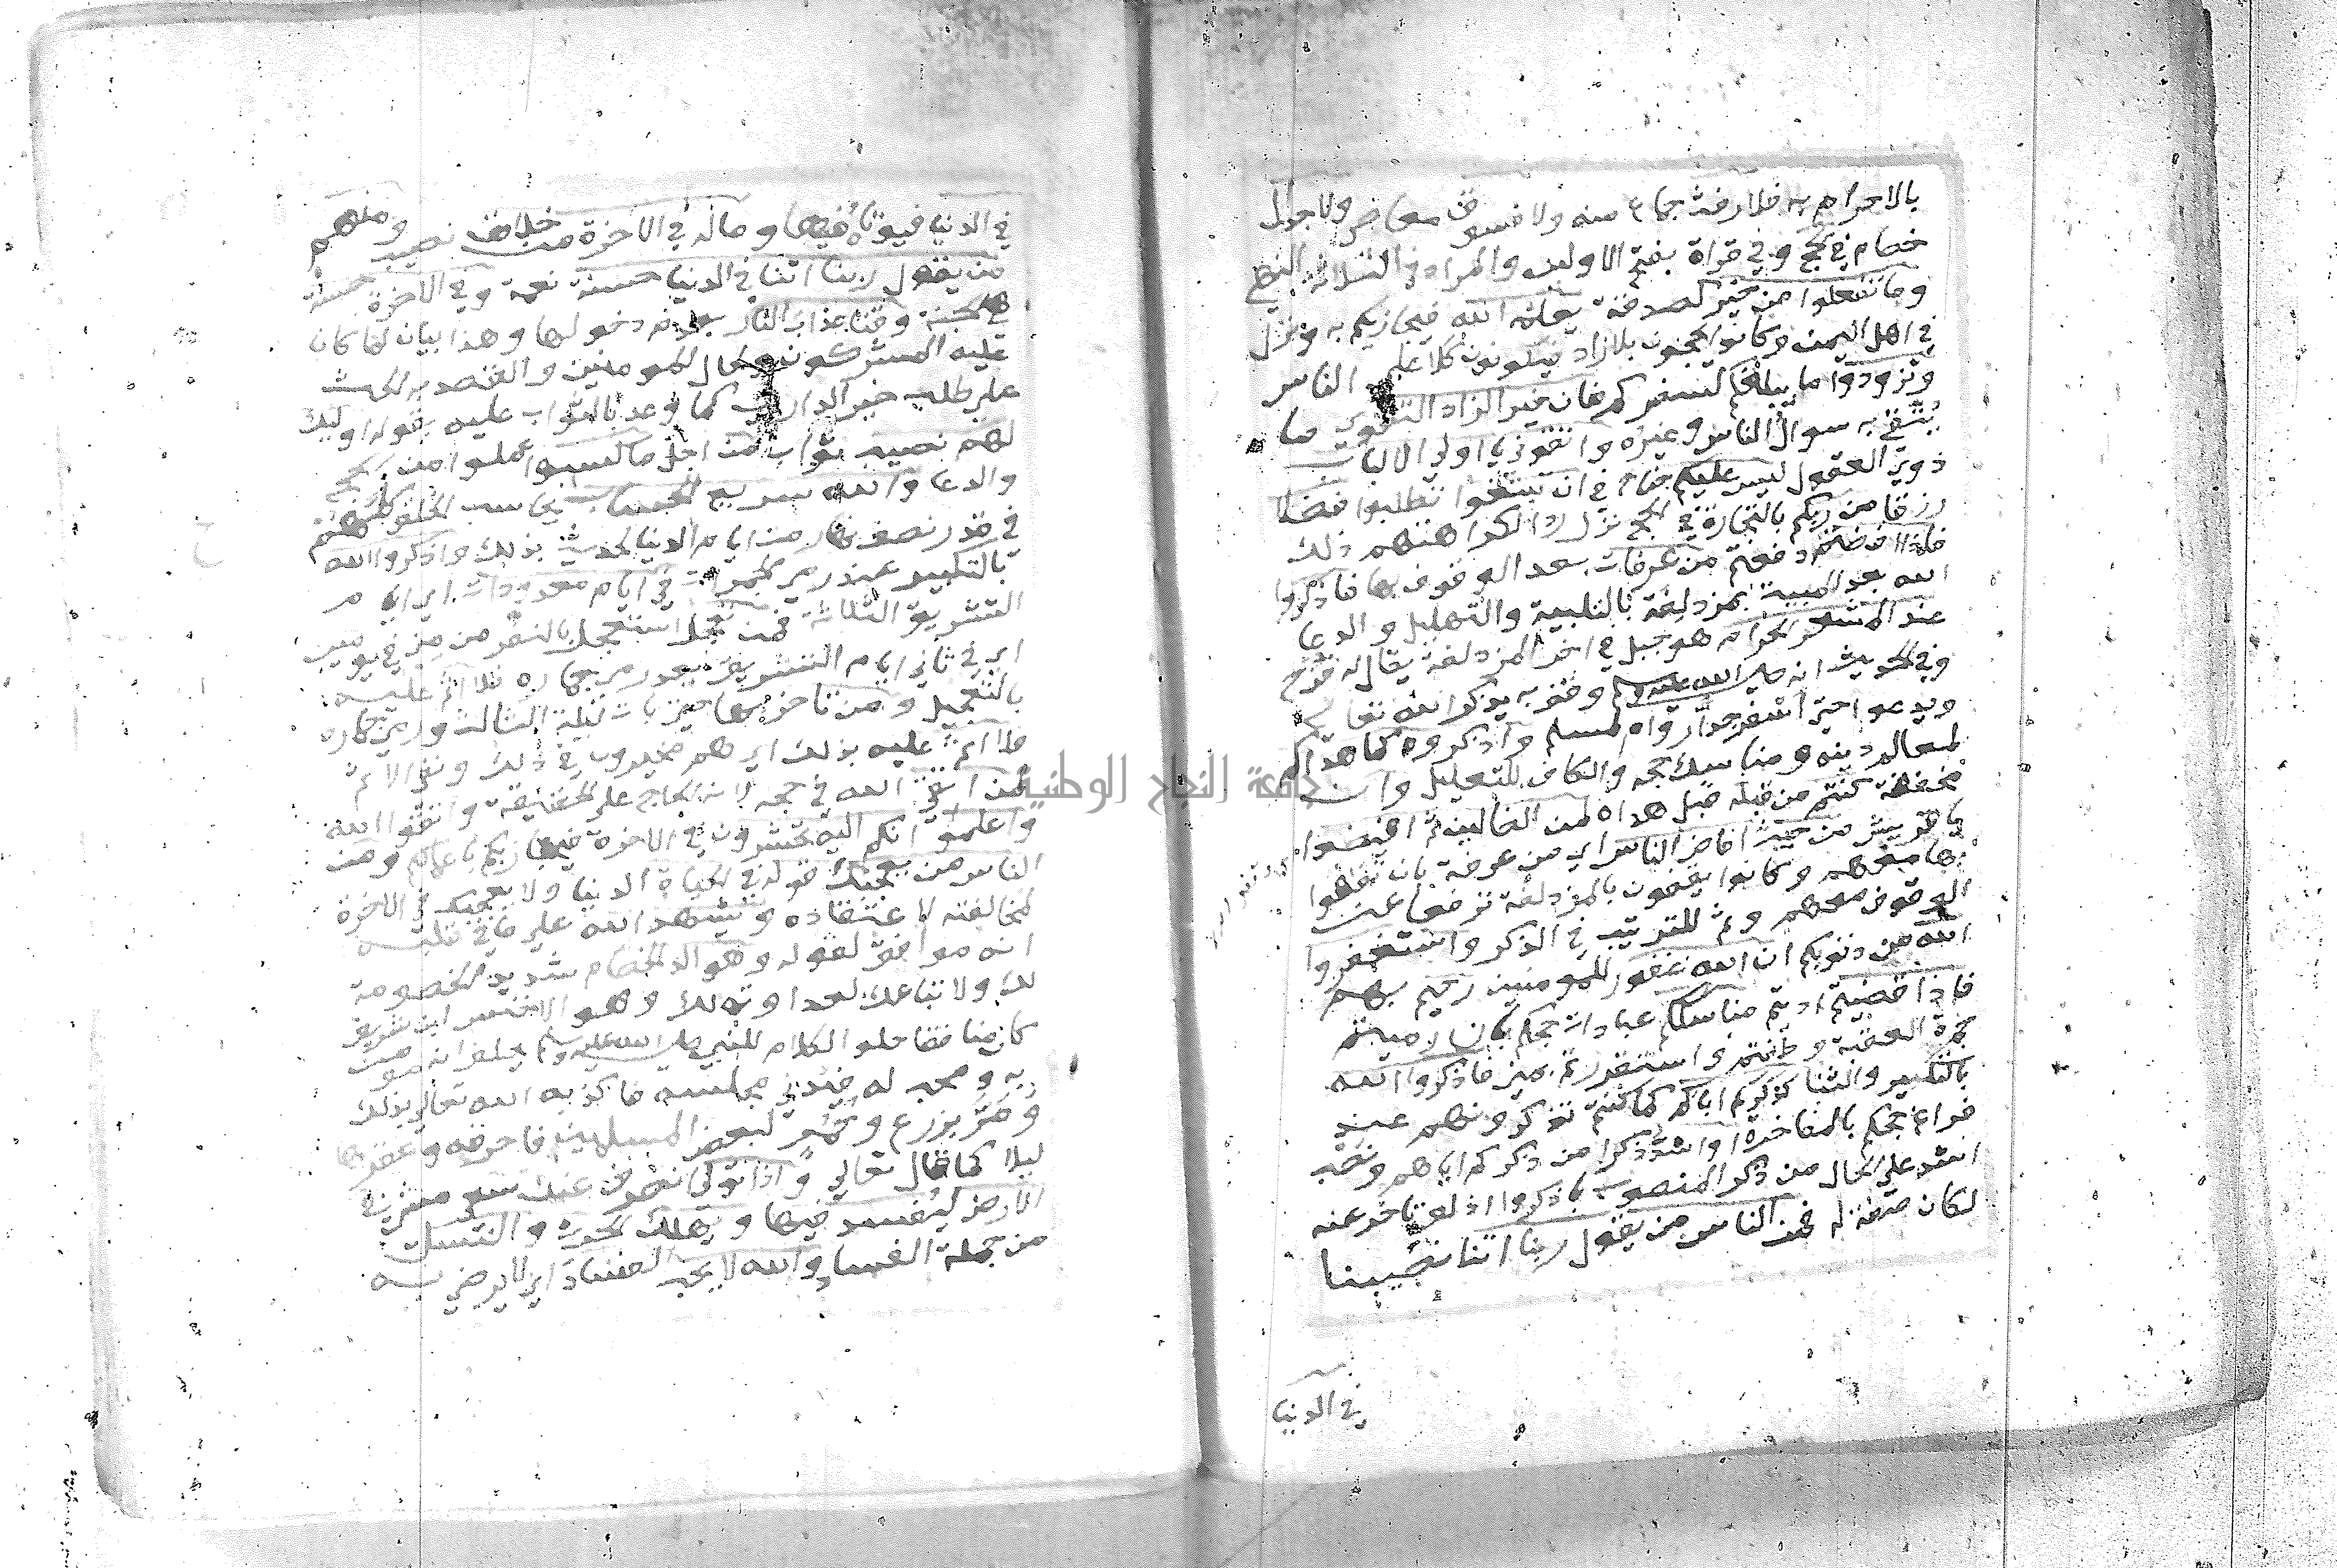 بالاحرام به فلا رفث جماع منه ولا فسوق معاص ولا جدال
خصام في الحج وفي قراة بفتح الاولين والمراد في الثلاثة النهي
وما تفعلوا من خير كصدقة يعلمه الله فيجازيكم به ونزل
في اهل اليمن وكانوا يحجون بلا زاد فيكونون كلا على الناس
وتزودوا ما يبلغكم لسفركم فان خير الزاد التقوى ما
يُتقى به سوال الناس وغيره واتقون يا اولي الالباب
ذوي العقول ليس عليكم جناح في ان تبتغوا تطلبوا فضلا
رزقا من ربكم بالتجارة في الحج نزل ردا لكراهتهم ذلك
فاذا افضتم دفعتم من عرفات بعد الوقوف بها فاذكروا
الله بعد المبيت بمزدلفة بالتلبية والتهليل والدعا
عند المشعر الحرام هو جبل في اخر المزدلفة يقال له قزح
وفي الحديث انه صلى الله عليه وسلم وقف به يذكر الله تعالى
ويدعوا حتى اسفر جدا رواه مسلم واذكروه كما هداكم
لمعالم دينه ومناسك حجه والكاف للتعليل وان
مخففة كنتم من قبله قبل هداه لمن الضالين ثم افيضوا
يا قريش من حيث افاض الناس اي من عرفة بان تقفوا
بها معهم وكانوا يقفون بالمزدلفة ترفعا عن
الوقوف معهم وثم للترتيب في الذكر واستغفروا
الله من ذنوبكم ان الله غفور للمومنين رحيم بهم
فاذا قضيتم اديتم مناسككم عبادات حجكم بان رميتم
جمرة العقبة وطفتم واستقررتم بمنى فاذكروا الله
بالتكبير والثنا كذكركم اباكم كما كنتم تذكرونهم عند
فراغ حجكم بالمفاخرة او اشد ذكرا من ذكركم اياهم ونصب
اشد على الحال من ذكر المنصوب باذكروا اذ لو تاخر عنه
لكان صفة له فمن الناس من يقول ربنا اتنا نصيبنا
في الدنيا
في الدنيا فيوتاه فيها وماله في الاخرة من خلاق نصيب ومنهم
من يقول ربنا اتنا في الدنيا حسنة نعمة وفي الاخرة حسنة
هي الجنة وقنا عذاب النار بعدم دخولها وهذا بيان لما كان
عليه المشركون ولحال المومنين والقصد به الحث
على طلب خير الدارين كما وعد بالثواب عليه بقوله اوليك
لهم نصيب ثواب من اجل ما كسبوا عملوا من الحج
والدعا والله سريع الحساب يحاسب الخلق كلهم
في قدر نصف نهار من ايام الدنيا لحديث بذلك واذكروا الله
بالتكبير عند رمي الجمرات في ايام معدودات اي ايام
التشريق الثلاثة فمن تعجل استعجل بالنفر من منى في يومين
اي في ثاني ايام التشريق بعد رمي جماره فلا اثم عليه
بالتعجيل ومن تاخر بها حتى بات ليلة الثالث ورمى جماره
فلا اثم عليه بذلك اي هم مخيرون في ذلك ونفي الاثم
لمن اتقى الله في حجه لانه الحاج على الحقيقة واتقوا الله
واعلموا انكم اليه تحشرون في الاخرة فيجازيكم باعمالكم ومن
الناس من يعجبك قوله في الحياة الدنيا ولا يعجبك في الاخرة
لمخالفته لاعتقاده ويشهد الله على ما في قلبه
انه موافق لقوله وهو الد الخصام شديد الخصومة
لك ولاتباعك لعداوته لك وهو الاخنس ابن شريق
كان منافقا حلو الكلام للنبي صلى الله عليه وسلم يحلف انه مومن
به ومحب له فيدني مجلسه فاكذبه الله تعالى بذلك
ومر بزرع وحمر لبعض المسلمين فاحرقه وعقرها
ليلا كما قال تعالى واذا تولى انصرف عنك سعى مشى في
الارض ليفسد فيها ويهلك الحرث والنسل
من جملة الفساد والله لا يحب الفساد اي لا يرضى به
جامعة النجاح الوطنية